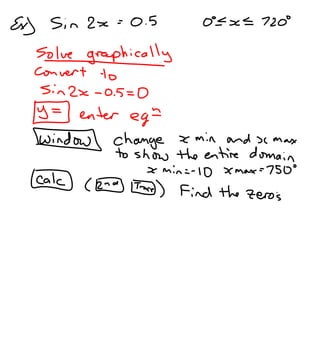 Ex) Sin 2x = 0.5 0°≤x≤ 720°
Solve graphically
Convert to
Sin2x -0.5=0
y= enter eqⁿ
Window change x min and x max
to show the entire domain
x min=-10 xmax=750°
Calc (2nd Trace) Find the zero's